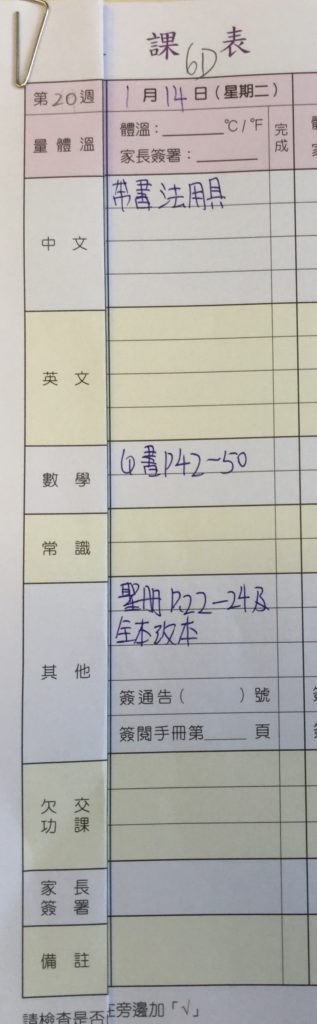 課表
6D
第20週 1月14日(星期二)
量體溫 體溫:______℃/℉ 完成
家長簽署:______
中文 帶書法用具
英文
數學 書P42-50
常識
其他 聖冊P.22-24及
全本改本
簽通告( )號
簽閱手冊第____頁
欠交功課
家長簽署
備註
請檢查是否 在旁邊加「√」